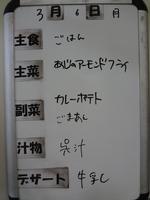 3月6日月
主食 ごはん
主菜 あじのアーモンドフライ
副菜 カレーポテト
ごまあし
汁物 呉汁
デザート 牛乳